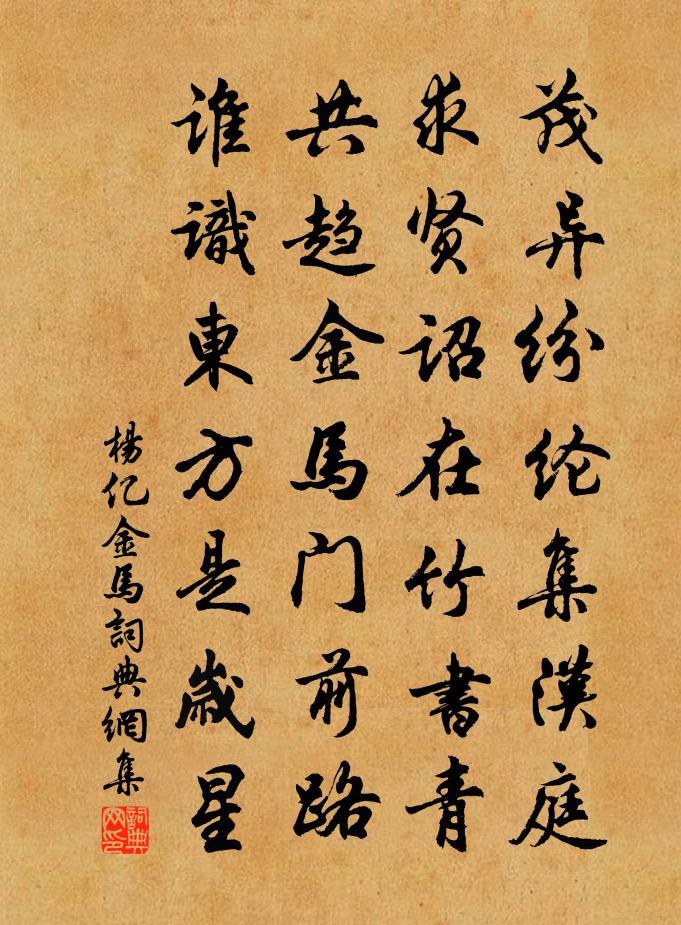 茂异纷纶集漢庭
求贤詔在竹書青
共趋金馬门前路
誰識東方是歲星
楊亿金馬詞典網集
詞典网印